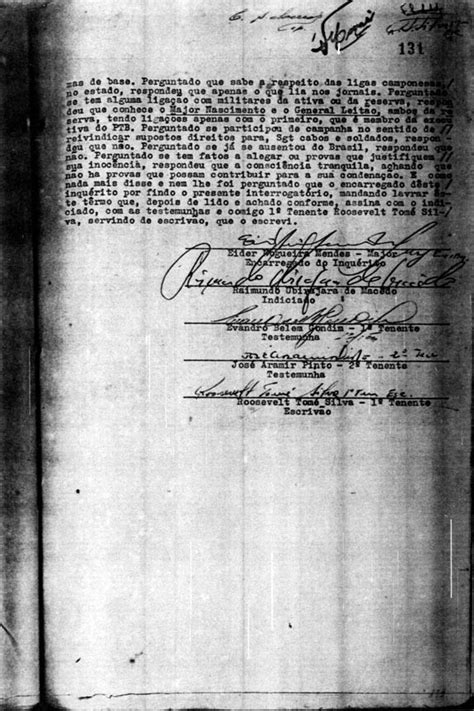 131
mas de base. Perguntado que sabe a respeito das ligas camponesas/
no estado, respondeu que apenas o que lia nos jornais. Perguntado
se tem alguma ligaçao com militares da ativa ou da reserva, respon
deu que conhece o Major Nascimento e o General Leitao, ambos da re
serva, tendo ligações apenas com o primeiro, que é membro da exeu
tiva do PTB. Perguntado se participou de campanha no sentido de /
reivindicar supostos direitos para, Sgt cabos e soldados, respon-
deu que não. Perguntado se já se ausentou do Brasil, respondeu que
não. Perguntado se tem fatos a alegar ou provas que justifiquem /
sua inocência, respondeu que a consciência tranquila, achando que
não ha provas que possam contribuir para a sua condenaçao. E como
nada mais disse e nem lhe foi perguntado que o encarregado dêste /
inquérito por findo o presente interrogatório, mandando lavrar ês-
te têrmo que, depois de lido e achado conforme, assina com o indi-
ciado, com as testemunhas e comigo 1º Tenente Roosevelt Tomé Sil-/
va, servindo de escrivao, que o escrevi.
Eider Nogueira Mendes - Major
Encarregado do Inquérito
Raimundo Ubirajara de Macedo
Indiciado
Evandro Belem Gondim - 1º Tenente
Testemunha
José Aramir Pinto - 2º Tenente
Testemunha
Roosevelt Tomé Silva 1º Ten Esc
Roosevelt Tomé Silva - 1º Tenente
Escrivao